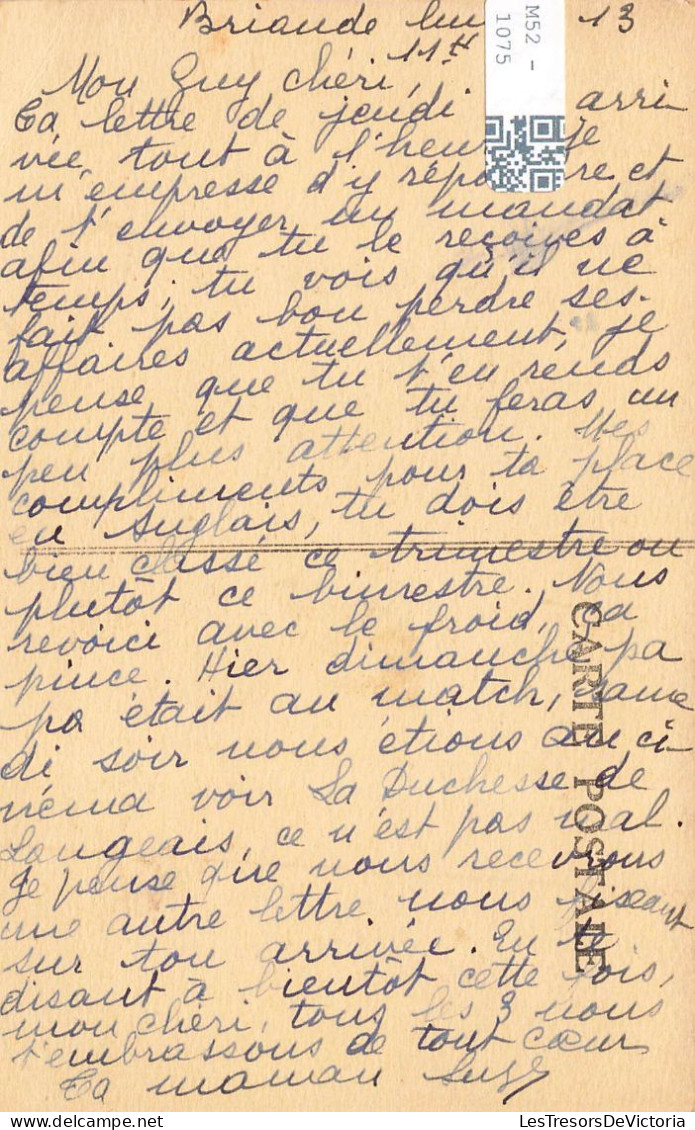 Brioude lun 13
11H
Mon Guy chéri,
Ta lettre de jeudi arri
vée tout à l'heure je
m'empresse d'y répondre et
de t'envoyer un mandat
afin que tu le reçoives à
temps; tu vois qu'il ne
fait pas bon perdre ses
affaires actuellement, je
pense que tu t'en rends
compte et que tu feras un
peu plus attention. Mes
compliments pour ta place
en Anglais, tu dois être
bien classé ce trimestre ou
plutôt ce bimestre. Nous
revoici avec le froid, ça
pince. Hier dimanche pa
pa était au match, same
di soir nous étions au ci-
néma voir La Duchesse de
Langeais, ce n'est pas mal.
Je pense que nous recevrons
une autre lettre nous disant
sur ton arrivée. En te
disant à bientôt cette fois,
mon chéri, tous les 3 nous
t'embrassons de tout cœur
Ta maman Suzy
M52 -
1075
CARTE POSTALE
LesTresorsDeVictoria.com